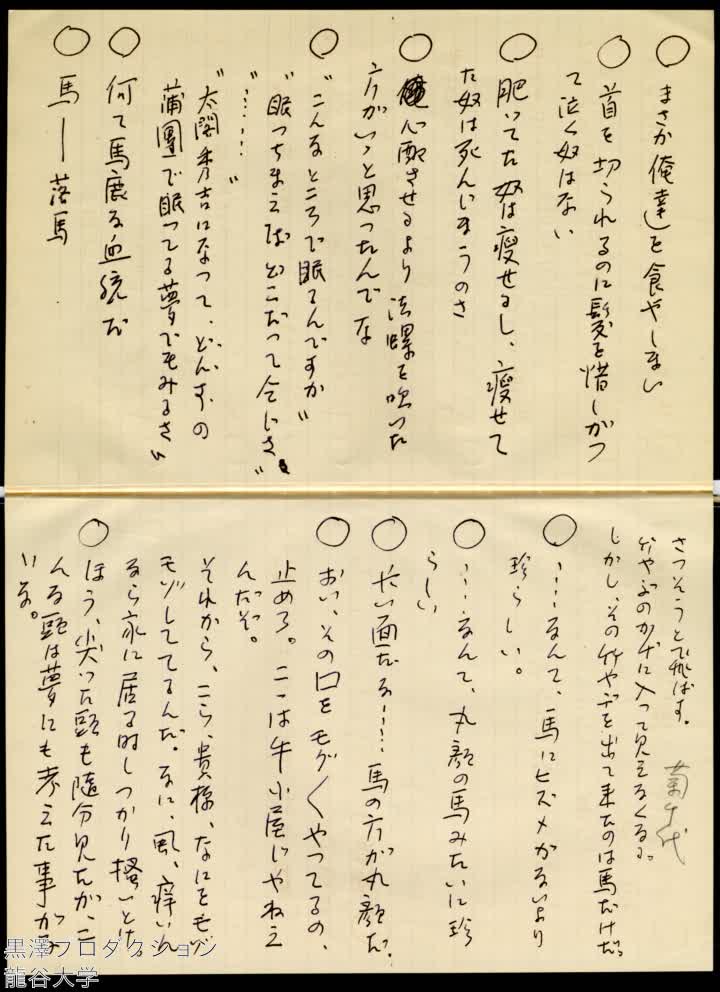 ○ まさか俺達を食やしまい
○ 首を切られるのに髪を惜しがつ
て泣く奴はない
○ 肥いてた奴は瘦せるし、瘦せて
た奴は死んじまうのさ
○ 心配させるより法螺を吹いた
方がいゝと思つたんでな
○ “こんなところで眠るんですか”
“眠つちまえばどこだつて同じさ”
“……”
“太閤秀吉になつて、どんすの
蒲團で眠つてる夢でもみるさ”
○ 何て馬鹿な血統だ
○ 馬―落馬
さつそうと飛ばす。
竹やぶのかげに入つて見えなくなる。
しかし、その竹やぶを出て来たのは馬だけだ。
菊千代
○ ……なんて、馬にヒズメがないより
珍らしい。
○ ……なんて、丸顔の馬みたいに珍
らしい
○ 長い面だな……馬の方が丸顔だ。
○ おい、その口をモグ〱やつてるの、
止めろ。こゝは牛小屋じやねえ
んだぞ。
それから、こら、貴様、なにをモゾ
モゾしてるんだ。なに、虱、痒いん
なら家に居る時しつかり搔いとけ。
○ ほう、尖つた頭も隨分見たが、こ
んな頭は夢にも考えた事がな
いな。
黒澤プロダクション
龍谷大学